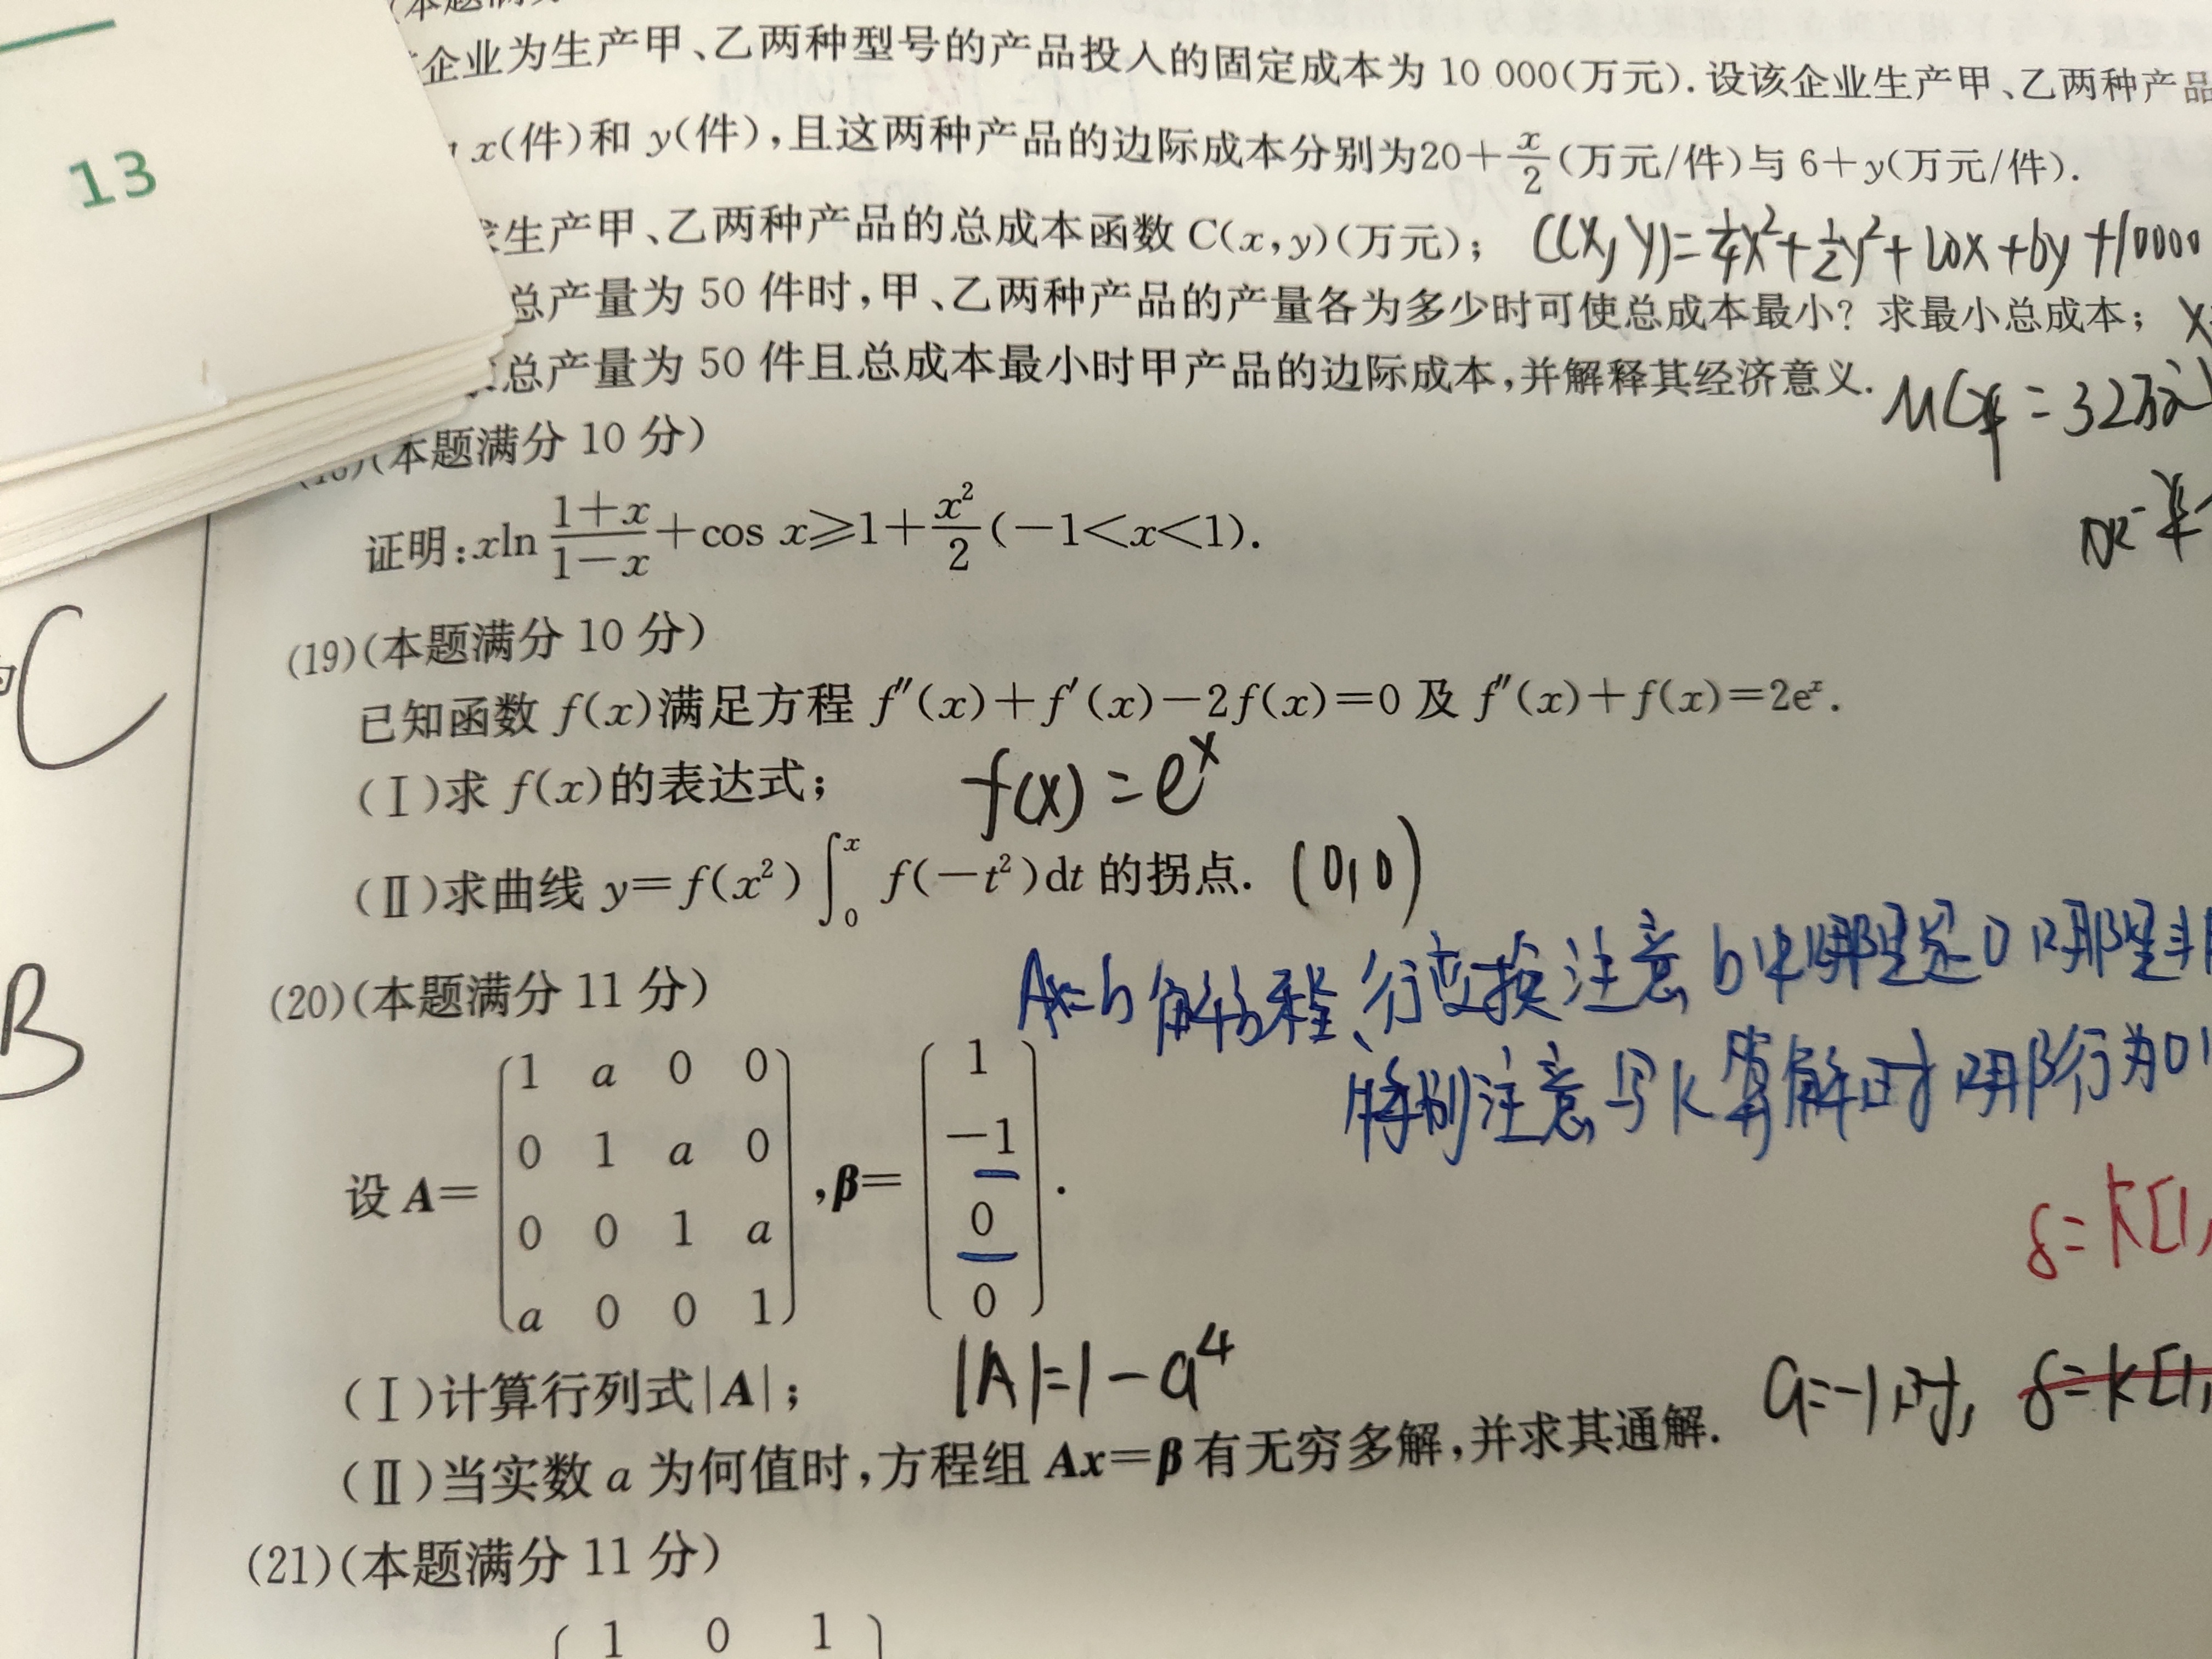 (本题满分
企业为生产甲、乙两种型号的产品投入的固定成本为 10 000(万元). 设该企业生产甲、乙两种产品
x(件)和 y(件),且这两种产品的边际成本分别为20+x/2(万元/件)与 6+y(万元/件).
13
求生产甲、乙两种产品的总成本函数 C(x,y)(万元); C(x,y)=1/4x²+1/2y²+20x+6y+10000
总产量为 50 件时,甲、乙两种产品的产量各为多少时可使总成本最小? 求最小总成本; x
总产量为 50 件且总成本最小时甲产品的边际成本,并解释其经济意义.
MC甲=32万元
(18)(本题满分 10 分)
证明:xln (1+x)/(1−x)+cos x⩾1+x²/2(−1<x<1).
C
(19)(本题满分 10 分)
已知函数 f(x)满足方程 f″(x)+f′(x)−2f(x)=0 及 f″(x)+f(x)=2eˣ.
(Ⅰ)求 f(x)的表达式; f(x)=eˣ
(Ⅱ)求曲线 y=f(x²)∫₀ˣ f(−t²)dt 的拐点. (0,0)
B
Ax=b 解方程、行变换注意 b中哪里是0
(20)(本题满分 11 分)
特别注意 写k算解时 哪行为0
设 A= (1 a 0 0 ,β= (1
0 1 a 0 −1
0 0 1 a 0
a 0 0 1) 0).
ξ=k[1,
(Ⅰ)计算行列式|A|; |A|=1−a⁴
a=-1时, ξ=k[1,
(Ⅱ)当实数 a 为何值时,方程组 Ax=β有无穷多解,并求其通解.
(21)(本题满分 11 分)
1 0 1